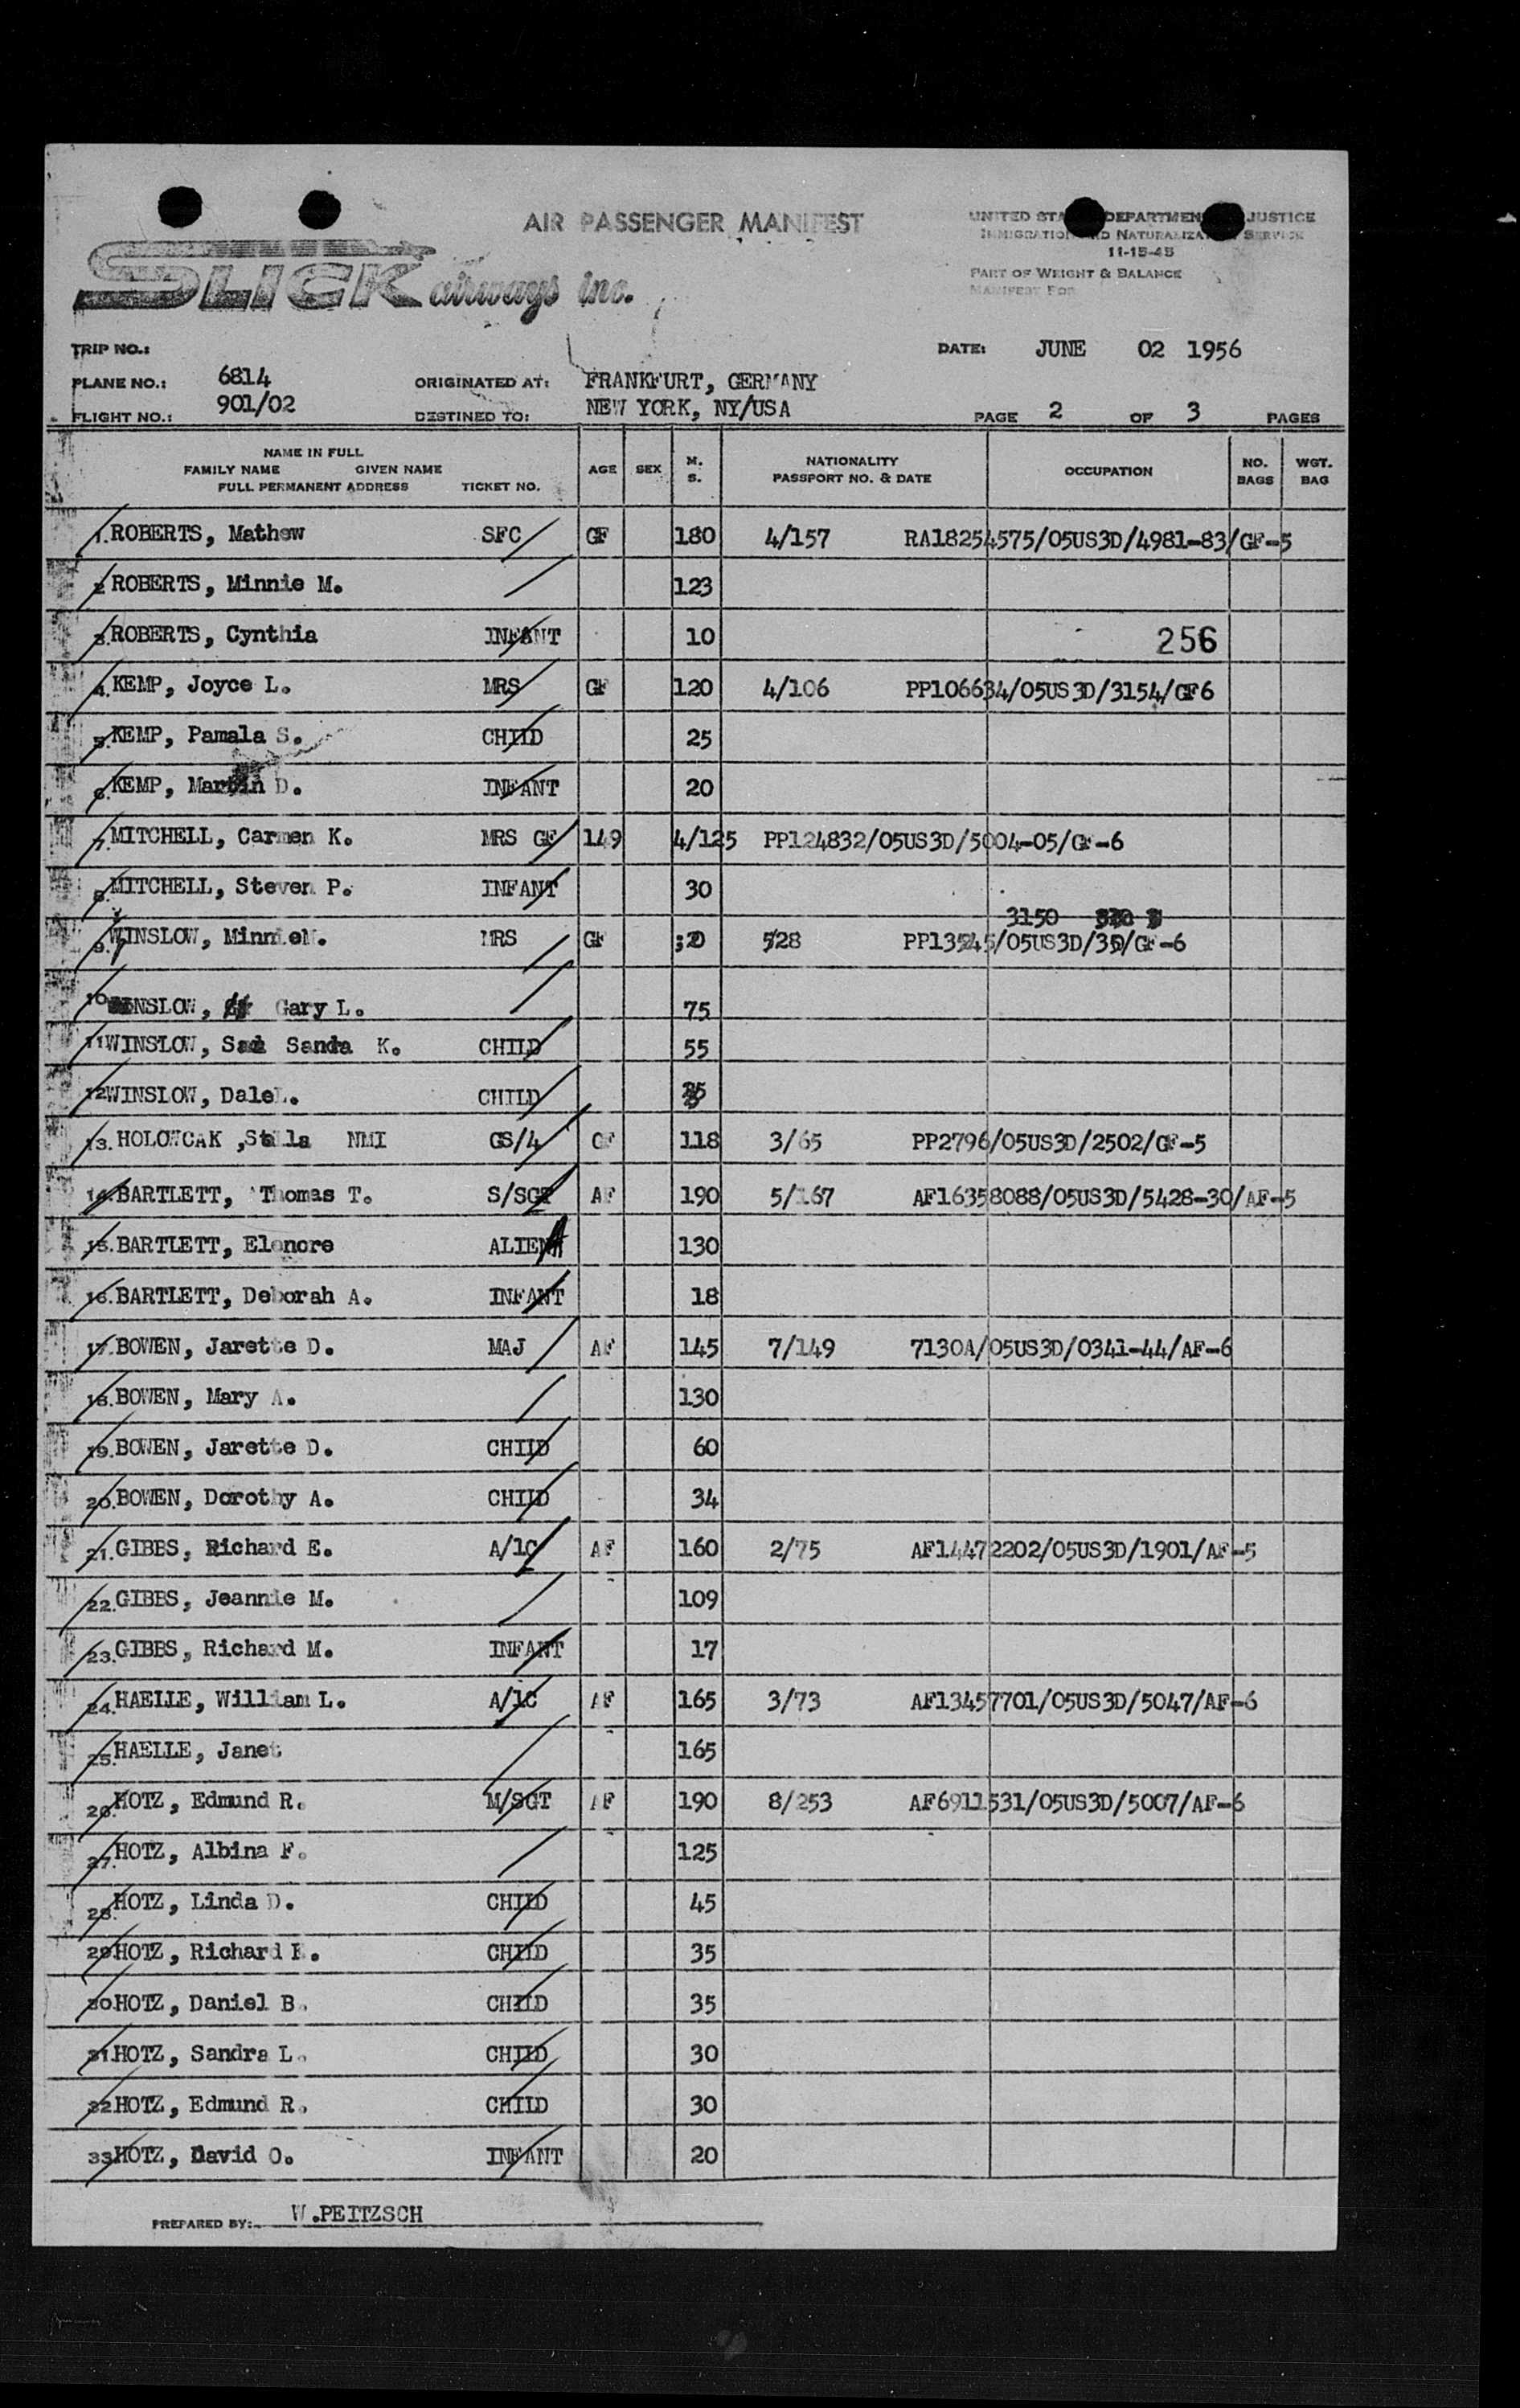 AIR PASSENGER MANIFEST
UNITED STA DEPARTMEN JUSTICE
IMMIGRATIO ND NATURALIZAT SERVICE
11-15-45
PART OF WEIGHT & BALANCE
MANIFEST FOR
SLICK airways inc.
TRIP NO.: DATE: JUNE 02 1956
PLANE NO.: 6814 ORIGINATED AT: FRANKFURT, GERMANY
FLIGHT NO.: 901/02 DESTINED TO: NEW YORK, NY/USA PAGE 2 OF 3 PAGES
NAME IN FULL
FAMILY NAME GIVEN NAME
FULL PERMANENT ADDRESS TICKET NO.
AGE SEX M. S.
NATIONALITY
PASSPORT NO. & DATE
OCCUPATION
NO. BAGS
WGT. BAG
1. ROBERTS, Mathew SFC GF 180 4/157 RA18254575/05US3D/4981-83/GF-5
2 ROBERTS, Minnie M. 123
3. ROBERTS, Cynthia INFANT 10 256
4. KEMP, Joyce L. MRS GF 120 4/106 PP106634/05US3D/3154/GF6
5. KEMP, Pamala S. CHILD 25
6. KEMP, Martin D. INFANT 20
7. MITCHELL, Carmen K. MRS GF 149 4/125 PP124832/05US3D/5004-05/GF-6
8. MITCHELL, Steven P. INFANT 30
3150
9. WINSLOW, Minnie MRS GF 528 /05US3D/ /GF-6
10 WINSLOW, Gary L. 75
11 WINSLOW, Sanda K. CHILD 55
12 WINSLOW, Dale L. CHILD
13. HOLOWCAK ,Stella NMI GS/4 GF 118 3/65 PP2796/05US3D/2502/GF-5
14. BARTLETT, Thomas T. S/SGT AF 190 5/167 AF16358088/05US3D/5428-30/AF-5
15. BARTLETT, Elonore ALIEN 130
16. BARTLETT, Deborah A. INFANT 18
17. BOWEN, Jarette D. MAJ AF 145 7/149 7130A/05US3D/0341-44/AF-6
18. BOWEN, Mary A. 130
19. BOWEN, Jarette D. CHILD 60
20. BOWEN, Dorothy A. CHILD 34
21. GIBBS, Richard E. A/1C AF 160 2/75 AF14472202/05US3D/1901/AF-5
22. GIBBS, Jeannie M. 109
23. GIBBS, Richard M. INFANT 17
24. HAELLE, William L. A/1C AF 165 3/73 AF13457701/05US3D/5047/AF-6
25. HAELLE, Janet 165
26. HOTZ, Edmund R. M/SGT AF 190 8/253 AF6911531/05US3D/5007/AF-6
27. HOTZ, Albina F. 125
28. HOTZ, Linda D. CHILD 45
29 HOTZ, Richard CHILD 35
30 HOTZ, Daniel B. CHILD 35
31. HOTZ, Sandra L. CHILD 30
32 HOTZ, Edmund R. CHILD 30
33 HOTZ, David O. INFANT 20
PREPARED BY: W.PEITZSCH